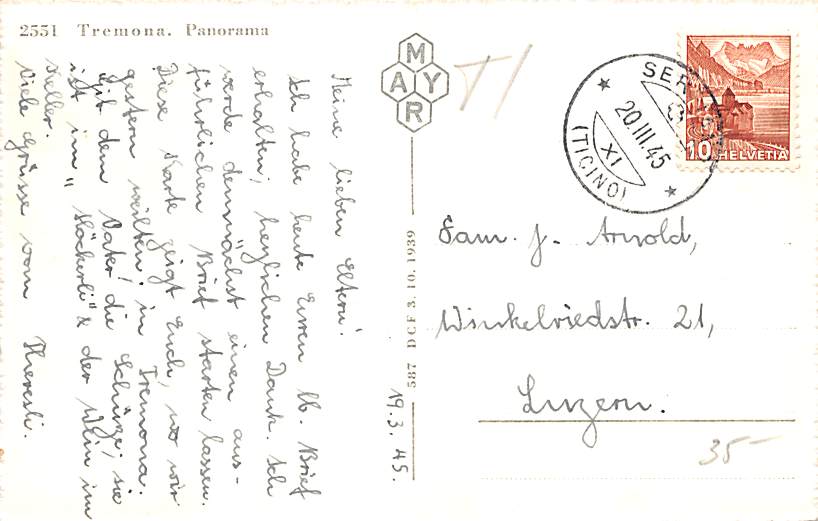 2551 Tremona. Panorama
MAYR
SER
20.III.45
XI
(TICINO)
10 HELVETIA
Meine lieben Eltern!
Ich habe heute Euren lb. Brief
erhalten, herzlichen Dank. Ich
werde demnächst einen aus-
führlichen Brief starten lassen.
Diese Karte zeigt Euch, wo wir
gestern weilten: in Tremona.
Git dem Vater die Schlüge, sie
ist im "Höckerli" & der Wein im
Keller.
Viele Grüsse vom Theresli.
19.3.45.
587 DCF 3. 10. 1939
Fam. J. Arnold,
Winkelriedstr. 21,
Luzern.
35-